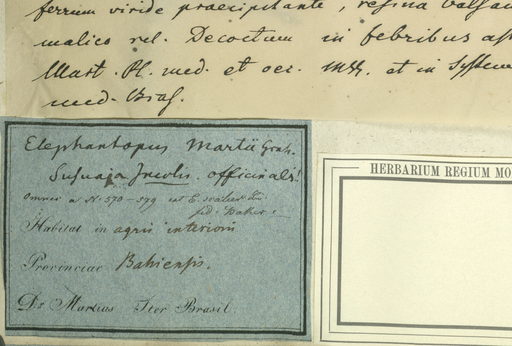 ferrum viride praecipitante, resina balsa
malico rel. Decoctum in febribus as
Mart. Pl. med. et oec. Mss. et in System
med. Bras.
Elephantopus Martii Grah.
Susuaja Incolis. officinalis!
omnes a N. 570-579 est E. scaber
fid. Baker
Habitat in agris interioris
Provinciae Bahiensis.
Dr Martius Iter Brasil.
HERBARIUM REGIUM MO